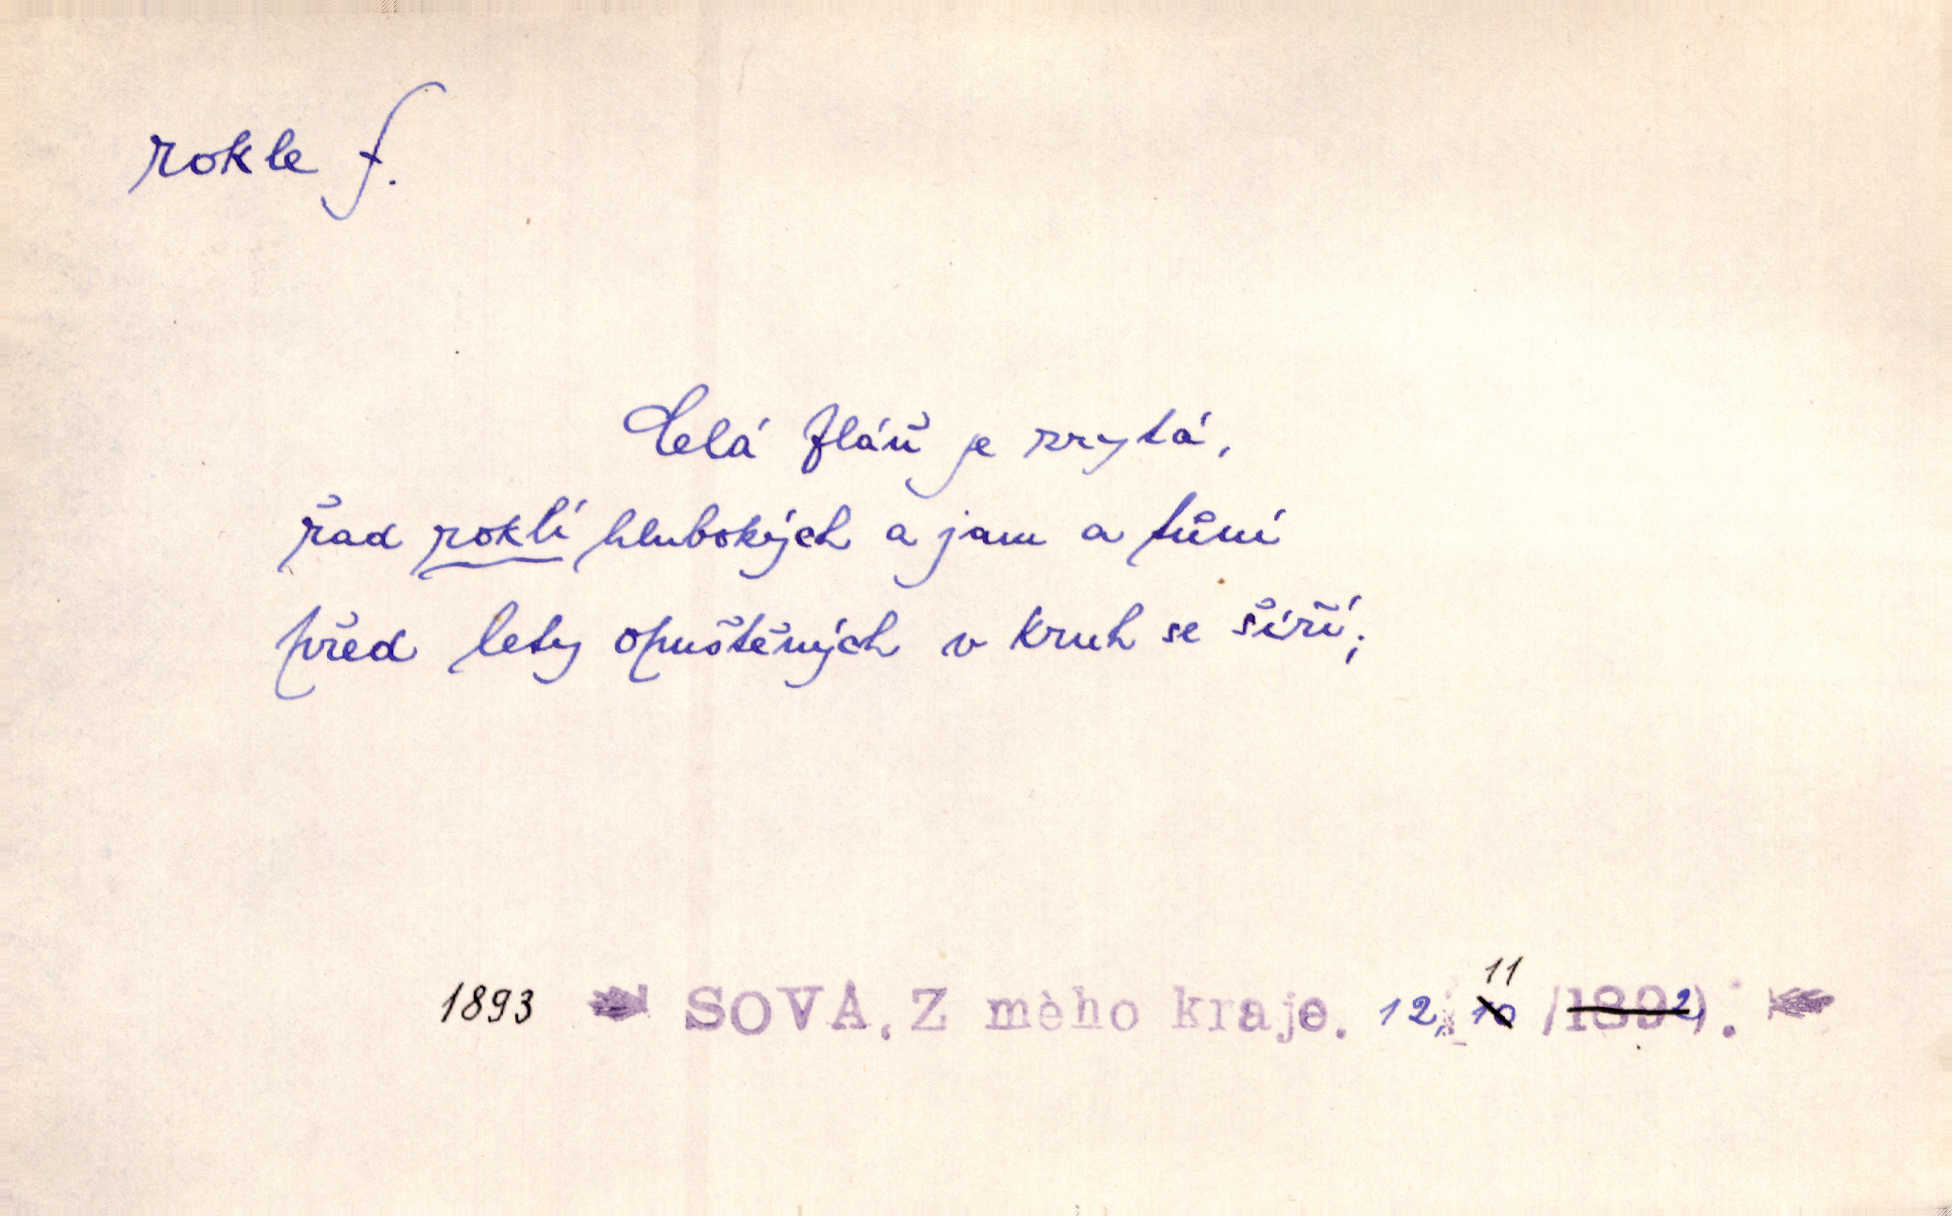 rokle f.
Celá pláň je zrytá,
řad roklí hlubokých a jam a tůní
před lety opuštěných v kruh se šíří;
11
1893 SOVA. Z mého kraje. 12, 10 /1892).